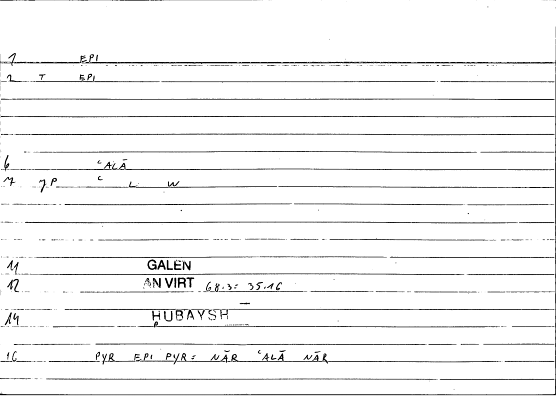 1 EPI
2 T EPI
6 ʿALĀ
7 JP ʿ L W
11 GALEN
12 AN VIRT 68.3 = 35.16
14 ḤUBAYSH
16 PYR EPI PYR = NĀR ʿALĀ NĀR